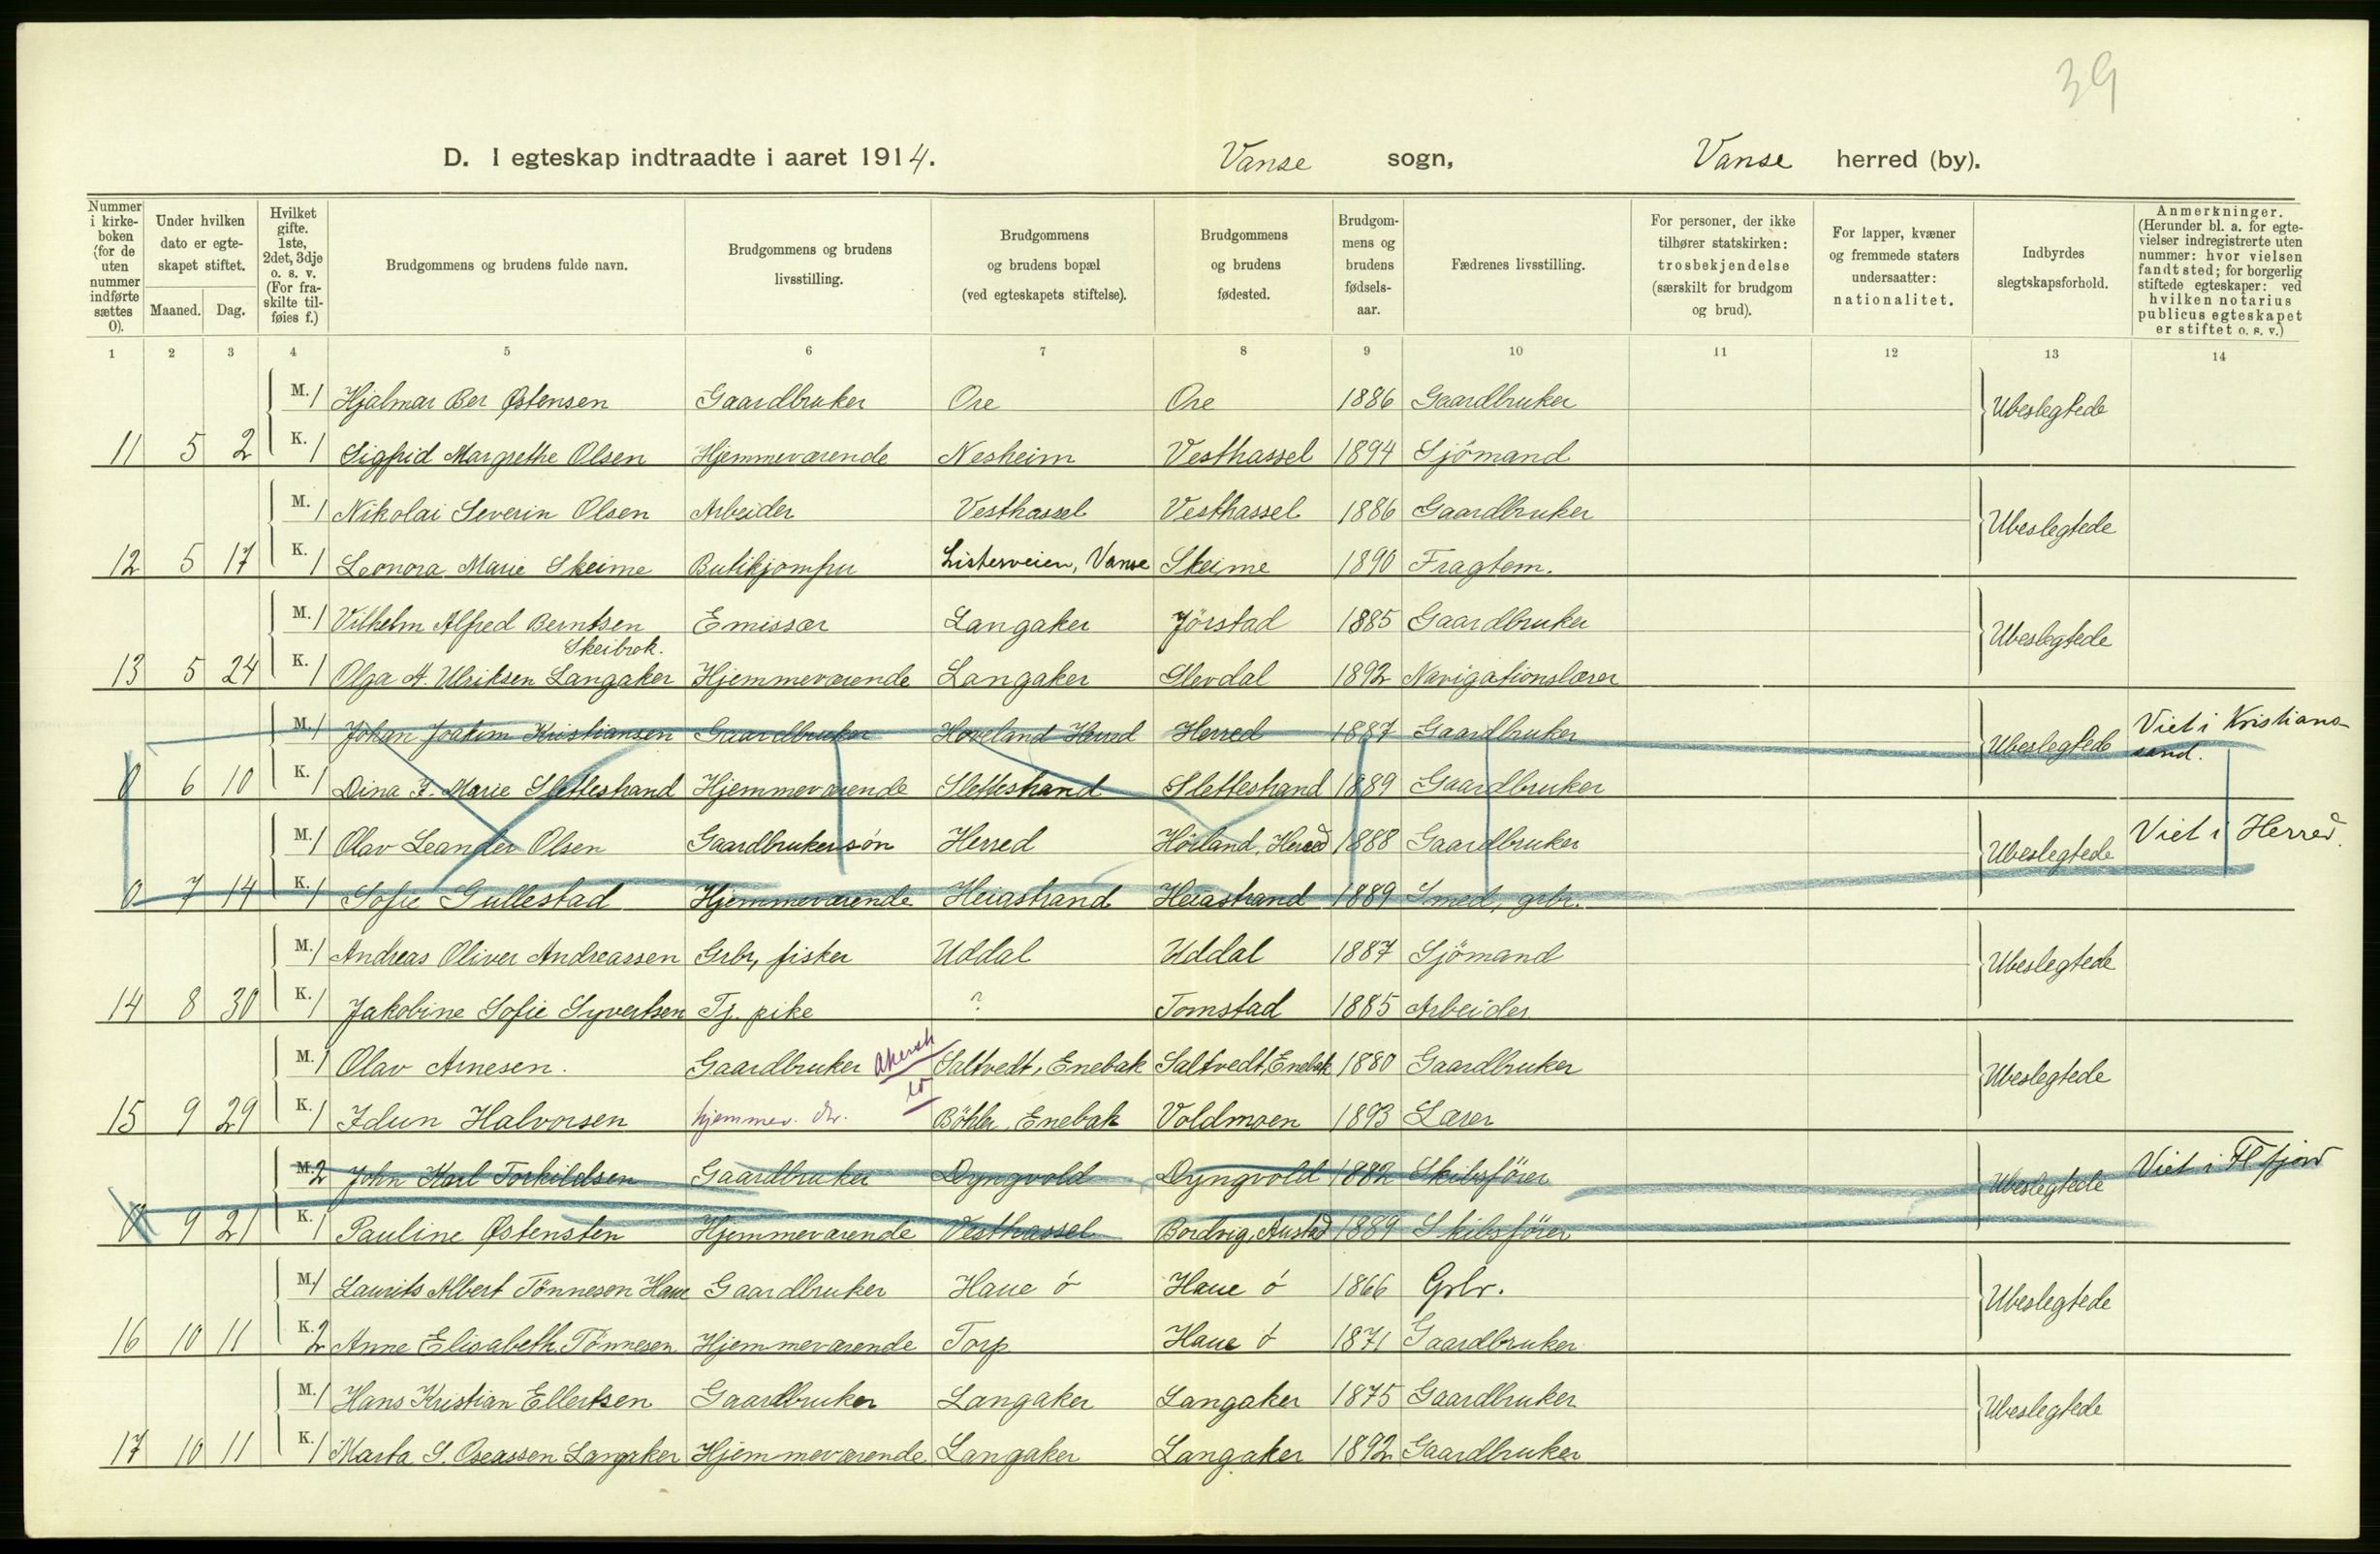 39
D. I egteskap indtraadte i aaret 1914. Vanse sogn, Vanse herred (by).
Nummer i kirke-boken (for de uten nummer indførte sættes 0).
Under hvilken dato er egte-skapet stiftet.
Maaned. Dag.
Hvilket gifte. 1ste, 2det, 3dje o. s. v. (For fra-skilte til-føies f.)
Brudgommens og brudens fulde navn.
Brudgommens og brudens livsstilling.
Brudgommens og brudens bopæl (ved egteskapets stiftelse).
Brudgommens og brudens fødested.
Brudgom-mens og brudens fødsels-aar.
Fædrenes livsstilling.
For personer, der ikke tilhører statskirken: trosbekjendelse (særskilt for brudgom og brud).
For lapper, kvæner og fremmede staters undersaatter: nationalitet.
Indbyrdes slegtskapsforhold.
Anmerkninger. (Herunder bl. a. for egte-vielser indregistrerte uten nummer: hvor vielsen fandt sted; for borgerlig stiftede egteskaper: ved hvilken notarius publicus egteskapet er stiftet o. s. v.)
1 2 3 4 5 6 7 8 9 10 11 12 13 14
M. 1 Hjalmar Ber Østensen Gaardbruker Ore Ore 1886 Gaardbruker Ubeslegtede
11 5 2 K. 1 Sigfrid Margrethe Olsen Hjemmeværende Nesheim Vesthassel 1894 Sjömand
M. 1 Nikolai Severin Olsen Arbeider Vesthassel Vesthassel 1886 Gaardbruker Ubeslegtede
12 5 17 K. 1 Leonora Marie Skeime Butikjomfru Listerveien, Vanse Skeime 1890 Fragtem.
M. 1 Vilhelm Alfred Berntsen Emissær Langaker Jörstad 1885 Gaardbruker Ubeslegtede
Skeibrok.
13 5 24 K. 1 Olga A. Ulriksen Langaker Hjemmeværende Langaker Slevdal 1892 Navigationslærer
M. 1 Johan Joakim Kristiansen Gaardbruker Hoveland Herred Herred 1887 Gaardbruker Ubeslegtede Viet i Kristians-
sand.
0 6 10 K. 1 Dina F. Marie Slettestrand Hjemmeværende Slettestrand Slettestrand 1889 Gaardbruker
M. 1 Olav Leander Olsen Gaardbrukersön Herred Hörland, Herred 1888 Gaardbruker Ubeslegtede Viet i Herred.
0 7 14 K. 1 Sofie Gullestad Hjemmeværende Heiastrand Heiastrand 1889 Smed, grbr.
M. 1 Andreas Oliver Andreassen Grbr, fisker Uddal Uddal 1887 Sjömand Ubeslegtede
14 8 30 K. 1 Jakobine Sofie Syvertsen Tj. pike ? Tomstad 1885 Arbeider
M. 1 Olav Arnesen. Gaardbruker Akersh Saltvedt, Enebak Saltvedt, Enebak 1880 Gaardbruker Ubeslegtede
15 9 29 K. 1 Idun Halvorsen hjemmev. dr. Böhler, Enebak Voldmoen 1893 Lærer
M. 2 John Karl Torkildsen Gaardbruker Dyngvold Dyngvold 1882 Skibsförer Ubeslegtede Viet i Fl fjord
0 9 21 K. 1 Pauline Østensten Hjemmeværende Vesthassel Bordvig, Austad 1889 Skibsförer
M. 1 Laurits Albert Tönneson Haue Gaardbruker Haue ö Haue ö 1866 Grbr. Ubeslegtede
16 10 11 K. 2 Anne Elisabeth Tönnesen Hjemmeværende Torp Haue ö 1871 Gaardbruker
M. 1 Hans Kristian Ellertsen Gaardbruker Langaker Langaker 1875 Gaardbruker Ubeslegtede
17 10 11 K. 1 Marta S. Oseassen Langaker Hjemmeværende Langaker Langaker 1892 Gaardbruker